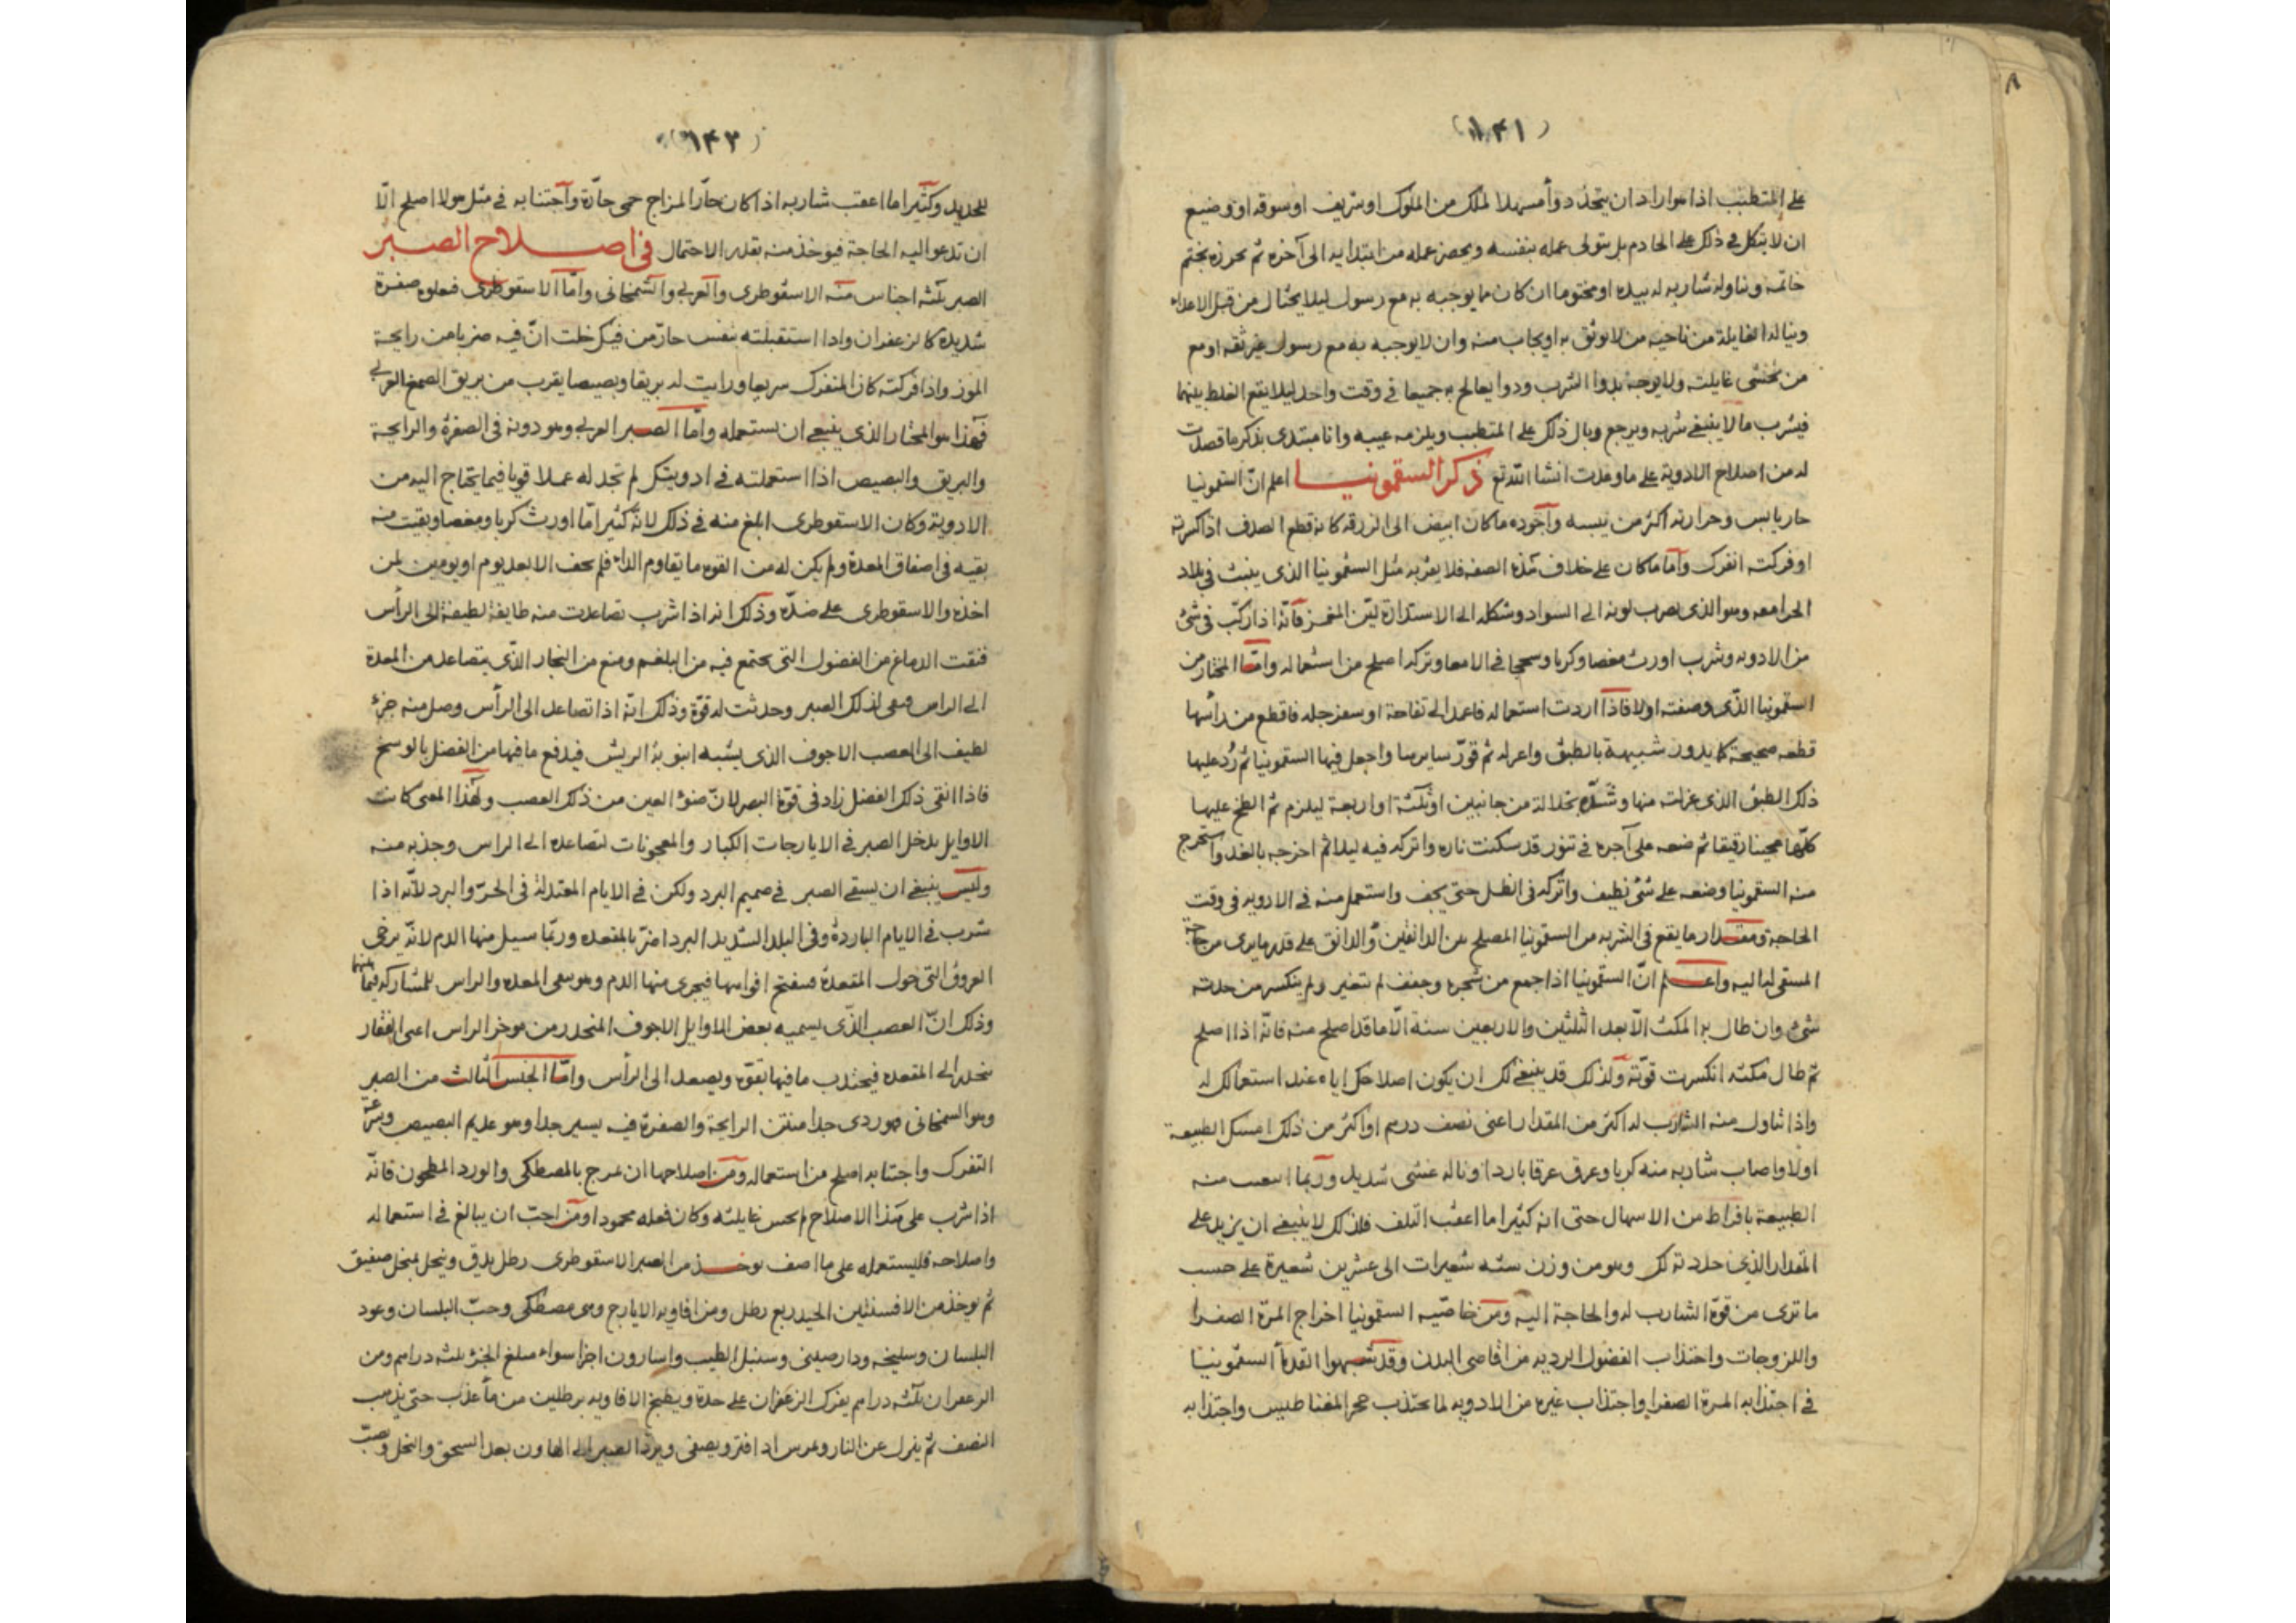 (١٤١)
على المتطبب اذا هو اراد ان يتخذ دوأ مسهلا لملك من الملوك او شريف او سوقه او وضيع
ان لا يتكل في ذلك على الخادم بل يتولى عمله بنفسه ويحضر عمله من ابتدايه الى آخره ثم يحرزه بختم
خاتمه ويناوله شاربه له بيده او مختوما ان كان مما يوجبه به مع رسول ليلا يحتال من قبل الاعداء
ويناله الغايلة من ناحيه من لا يوثق به او يجاب منه وان لا يوجبه به مع رسول غير ثقه او مع
من يخشى غايلته ولا يوجه بدوا الشرب ودوا يعالج به جميعا في وقت واحد ليلا يقع الغلط بينهما
فيشرب ما لا ينبغي شربه ويرجع وبال ذلك على المتطبب ويلزمه عيبه وانا مبتدى بذكر ما قصدت
له من اصلاح الادوية على ما وعدت انشا الله تع ذكر السقمونيــا اعلم انّ السقمونيا
حار يابس وحرارته اكثر من يبسه وآجوده ما كان ابيض الى الزرقه كانه قطع الصدف اذا كسرته
او فركته انفرك وآما ما كان على خلاف هذه الصفه فلا يعرّبه مثل السقمونيا الذى ينبت في بلاد
الحرامعه وهو الذى يضرب لونه الى السواد وشكله الى الاستدارة ليّن المغمز فآنه اذا ركّب في شئ
من الادويه وشرب اورث مغصا وكربا وسحجا في الامعا وتركه اصلح من استعماله وامّا المختار من
السقمونيا الذّى وصفته اولا فاذا اردت استعماله فاعمد الى تفاحة او سفرجله فاقطع من رأسها
قطعه صحيحة كما يدور شبيهة بالطبق واعزله ثم قوّر سايرها واجعل فيها السقمونيا ثم رُد عليها
ذلك الطبق الذى عزلته منها وشدّه بخلالة من جانبين او ثلثة او اربعة ليلزم ثم الطخ عليها
كلّها عجينا رقيقا ثم ضعه على آجره في تنور قد سكنت ناره واتركه فيه ليلا ثم اخرجه بالغد واستخرج
منه السقمونيا وضعه على شئ نظيف واتركه في الظل حتى يجف واستعمل منه في الادويه في وقت
الحاجة ومقــدار ما يقع في الشربه من السقمونيا المصلح من الدانقين والدانق على قدر ما يرى من حاجة
المستقى له اليه واعــلم انّ السقمونيا اذا جمع من شجره وجفف لم تتغير ولم ينكسر من حدته
شىء وان طال به المكث الّا بعد الثلثين والاربعين سنة الّا ما قد اصلح منه فانّه اذا اصلح
ثم طال مكثه انكسرت قوّته ولذلك قد ينبغي لك ان يكون اصلاحك اياه عند استعمالك له
واذا تناول منه الشارب له اكثر من المقدار اعنى نصف درهم او اكثر من ذلك امسك الطبيعة
اولا واصاب شاربه منه كربا وعرق عرقا باردا وناله غشى شديد وربما انبعث منه
الطبيعة بافراط من الاسهال حتى انه كثيرا ما اعقب التلف فلذلك لا ينبغي ان يزيد على
المقدار الذى حددته لك وهو من وزن سته شعيرات الى عشرين شعيرة على حسب
ما ترى من قوّة الشارب له والحاجة اليه ومن خاصّيه السقمونيا اخراج المرة الصفرا
واللزوجات واجتذاب الفضول الرديه من اقاصى البدن وقد شبهوا القدمأ السقمونيا
في اجتذابه المرة الصفرا واجتذاب غيره من الادويه لما يجتذب حجر المغناطيس واجتذابه
(١٤٢)
للحديد وكثيرا ما اعقب شاربه اذا كان حآر المزاج حمى حآرة وآجتنابه في مثل هولا اصلح الّا
ان تدعو اليه الحاجة فيوخذ منه بقدر الاحتمال في اصــلاح الصــبر
الصبر ثلثه اجناس منه الاسقوطرى والعربي والسمنجانى وامّا الاسقوطرى فيعلوه صفرة
شديده كالزعفران واذا استقبلته بنفس حارّ من فيك خلت انّ فيه ضربا من رايحة
المر واذا فركته كان المنفرك سريعا ورايت له بريقا وبصيصا يقرب من بريق الصمغ العربي
فهذا هو المختار الذى ينبغي ان يستعمله وامّا الصبر العربي وهو دونه في الصفرة والرايحة
والبريق والبصيص اذا استعملته في ادويتك لم تجد له عملا قويا فيما يحتاج اليه من
الادوية وكان الاسقوطرى ابلغ منه في ذلك لانّه كثيرا ما اورث كربا ومغصا وبقيت منه
بقيه في اصفاق المعدة ولم يكن له من القوه ما يقاوم الداء فلم يجف الا بعد يوم او يومين لمن
اخذه والاسقوطرى على ضدّه وذلك انه اذا شرب تصاعدت منه طايفة لطيفة الى الرأس
فنقت الدماغ من الفضول التى يجتمع فيه من البلغم ومنع من البخار الذى يتصاعد من المعدة
الى الراس فنقى لذلك البصر وحدثت له قوّة وذلك انّه اذا تصاعد الى الرأس وصل منه جزء
لطيف الى العصب الاجوف الذى يشبه انبوبة الريش فيدفع ما فيها من الفضل بالوسخ
فاذا انقى ذلك الفضل زاد في قوّة البصر لانّ ضوء العين من ذلك العصب ولهذا المعنى كانت
الاوايل يدخل الصبر في الايارجات الكبار والمعجونات لتصاعده الى الراس وجذبه منه
وليس ينبغي ان يسقى الصبر في صميم البرد ولكن في الايام المعتدلة في الحرّ والبرد لانّه اذا
شرب في الايام الباردة وفي البلد الشديد البرد اضرّ بالمقعده وربّما سيل منها الدم لانّه يرخى
العروق التى حول المقعدة فينفتح افواهها فيجرى منها الدم وهو سعى المعده والراس للمشاركه فيما بينهما
وذلك انّ العصب الذّى يسميه بعض الاوايل الاجوف المنحدر من موخر الراس اعنى الفقار
ينحدر الى المقعده فيجتذب ما فيها بقوّه ويصعد الى الرأس وامّا الجنس الثالث من الصبر
وهو السمنجانى فهو ردى جدا منتن الرايحة والصفرة فيه يسير جدا وهو عديم البصيص وسرعة
التفرك واجتنابه اصلح من استعماله ومن اصلاحها ان يمزج بالمصطكى والورد المطحون فانّه
اذا شرب على هذا الاصلاح لم يحس غايلته وكان فعله محمودا ومن احبّ ان يبالغ في استعماله
واصلاحه فليستعمله على ما اصف يوخــذ من الصبر الاسقوطرى رطل يدق وينخل بمنخل صفيق
ثم يوخذ من الافسنتين الجيد ربع رطل ومن افاويه الايارج وهى مصطكى وحبّ البلسان وعود
البلسان وسليخه ودارصينى وسنبل الطيب واسارون اجزا سواء مبلغ الجزء ثلثه دراهم ومن
الزعفران ثلثه دراهم يفرك الزعفران على حدة ويطبخ الافاويه برطلين من مأ عذب حتى يذهب
النصف ثم ينزل عن النار ويمرس اذا فتر ويصفى ويردّ الصبر الى الهاون بعد السحق والنخل ويصبّ